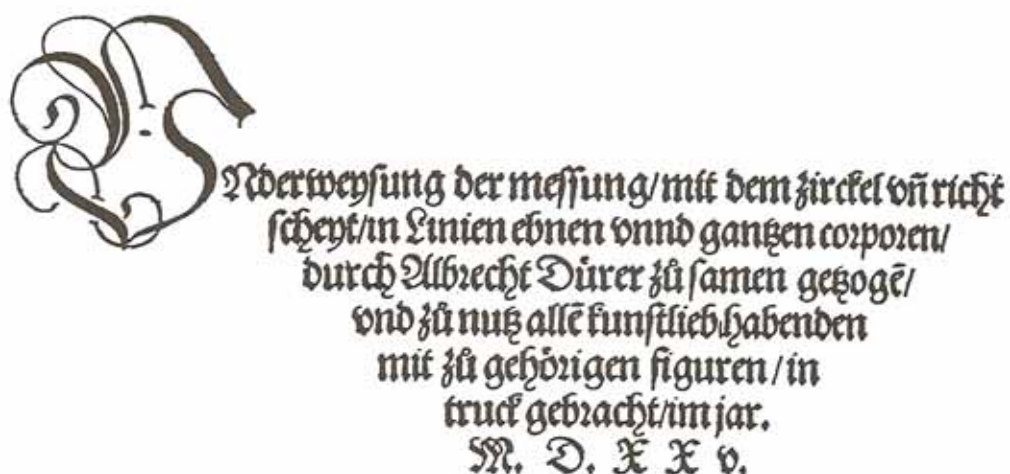 VNderweysung der messung/mit dem zirckel vn̄ richt
scheyt/in Linien ebnen vnnd gantzen corporen/
durch Albrecht Dürer zů samen getzogē/
vnd zů nutz allē kunstlieb habenden
mit zů gehörigen figuren/in
truck gebracht/im jar.
M. D. X X v.